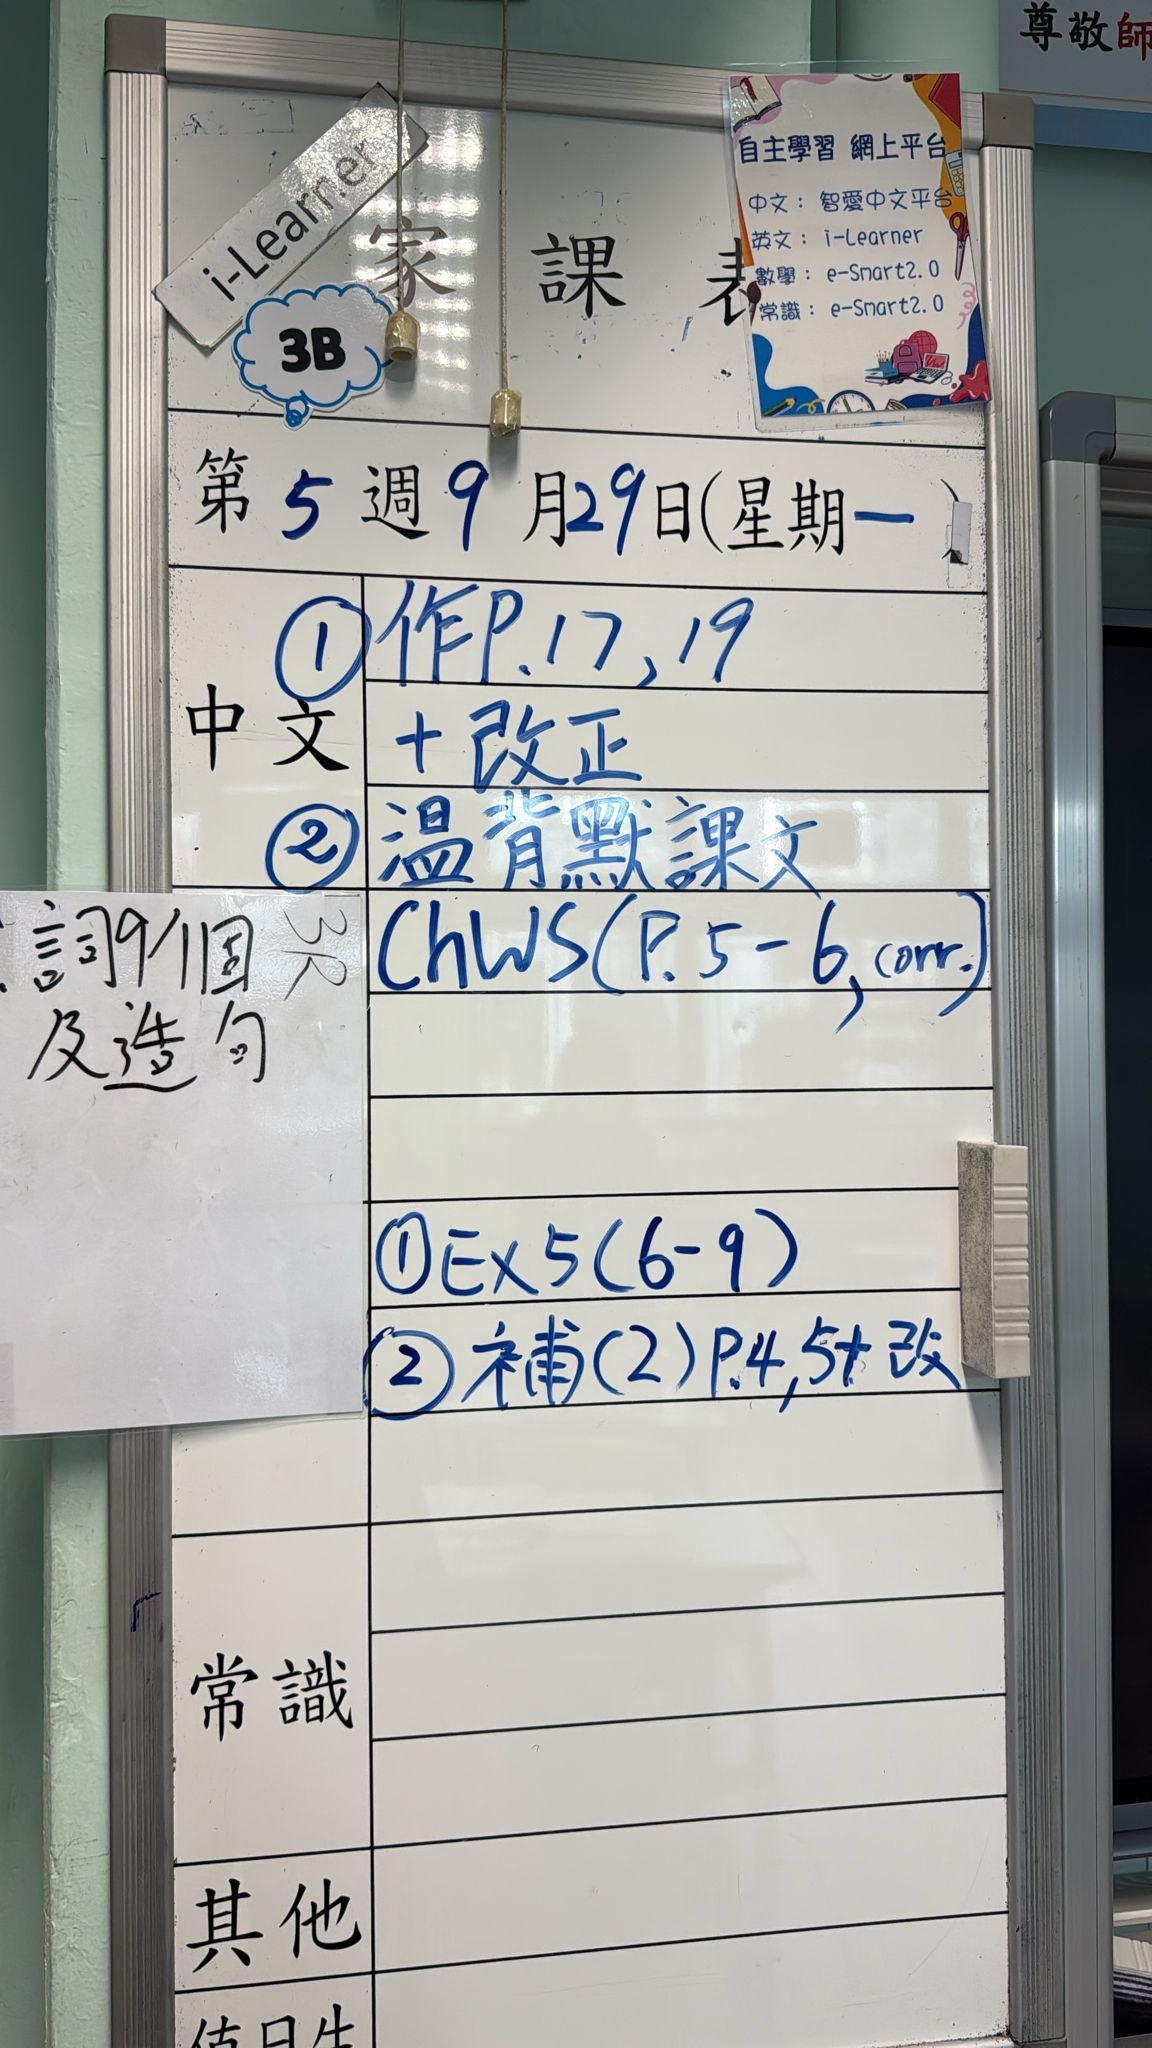 尊敬師
i-Learner
家課表
3B
自主學習 網上平台
中文： 智愛中文平台
英文： i-Learner
數學： e-Smart2.0
常識： e-Smart2.0
第5週9月29日(星期一)
中文
①作P.17,19
+改正
②溫背默課文
ChWS(P.5-6, corr.)
詞9個
及造句
①Ex5(6-9)
②補(2)P.4,5+改
常識
其他
值日生